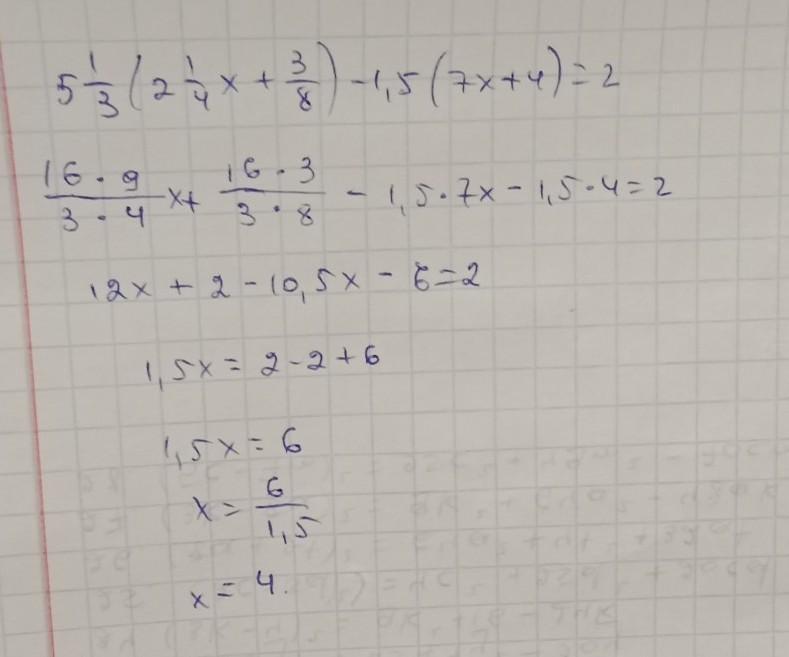 5 1/3 (2 1/4 x + 3/8) - 1,5 (7x+4) = 2
16·9/3·4 x + 16·3/3·8 - 1,5·7x - 1,5·4 = 2
12x + 2 - 10,5x - 6 = 2
1,5x = 2 - 2 + 6
1,5x = 6
x = 6/1,5
x = 4.